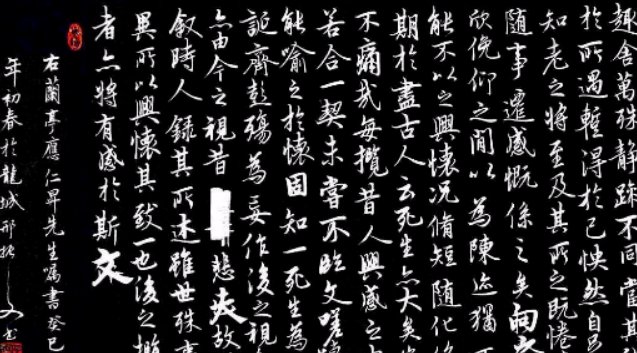 趣舍萬殊静躁不同當其
於所遇暫得於己怏然自
知老之将至及其所之既惓
随事遷感慨係之矣向
欣俛仰之間以為陳迹猶不
能不以之興懷况脩短随化
期於盡古人云死生亦大矣
不痛哉每攬昔人興感之
若合一契未嘗不臨文嗟
能喻之於懷固知一死生為
誕齊彭殤為妄作後之視
亦由今之視昔悲夫故
叙時人録其所述雖世殊事
異所以興懷其致一也後之攬
者亦将有感於斯文
右蘭亭應仁昇先生囑書癸巳
年初春於龍城邢